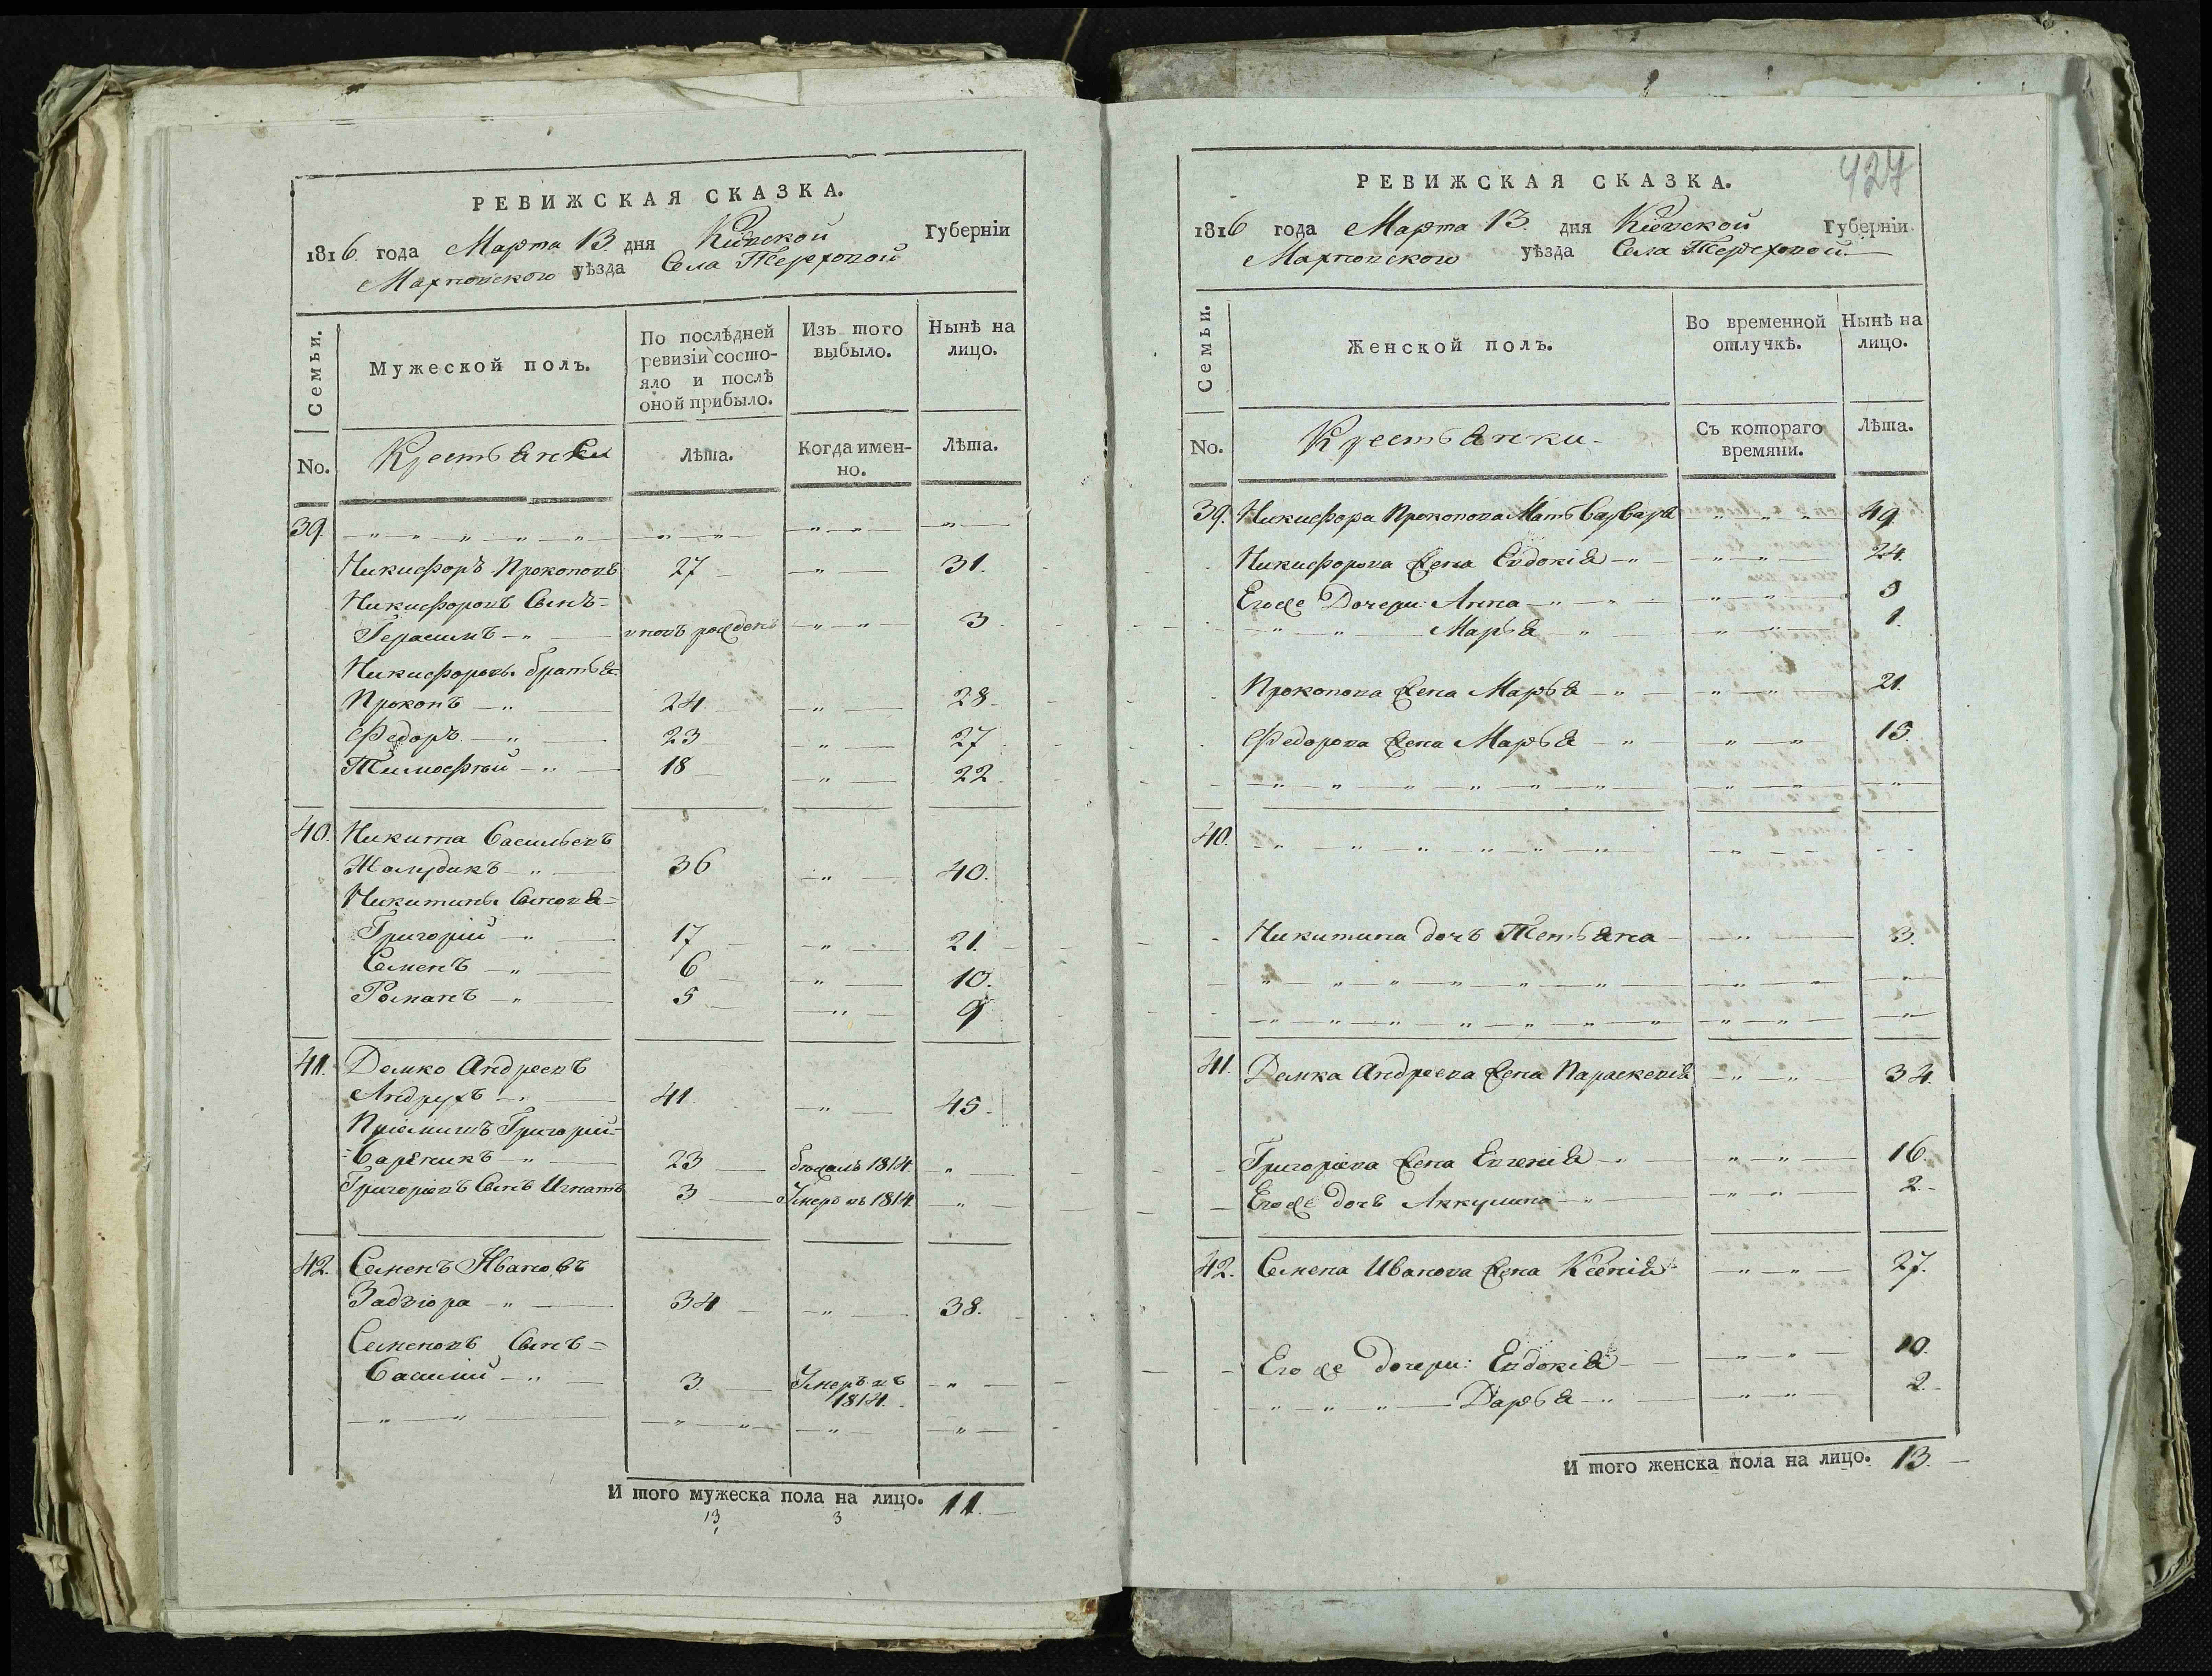 РЕВИЖСКАЯ СКАЗКА.
1816 года Марта 13 дня Кіевской Губерніи
Махновского уѣзда Села Терехової
Семьи.
Мужеской полъ.
По послѣдней ревизіи состояло и послѣ оной прибыло.
Изъ того выбыло.
Нынѣ на лицо.
No.
Крестьянки
Лѣта.
Когда именно.
Лѣта.
39
Никифоръ Прокоповъ 27 31.
Никифоровъ Сынъ=
Герасимъ вновь рожденъ 3
Никифоровы братья
Прокопъ 24 28
Федоръ 23 27
Тимофтей 18 22
40. Никита Васильевъ
36 40.
Никитины Сыновя=
Григорій 17 21.
Семенъ 6 10.
Романъ 5 9
41. Демко Андреевъ
Андрухъ 41 45.
Пріемишъ Григорій=
=Вареникъ 23 бежалъ 1814.
Григоріевъ Сынъ Игнатъ 3 Умеръ въ 1814.
42. Семенъ Ивановъ
Задвіора 34 38.
Семеновъ Сынъ=
Василій 3. Умеръ въ 1814.
И того мужеска пола на лицо. 11.
13 3
427
РЕВИЖСКАЯ СКАЗКА.
1816 года Марта 13. дня Кіевской Губерніи
Махновского уѣзда Села Терехової
Семьи.
Женской полъ.
Во временной отлучкѣ.
Нынѣ на лицо.
No.
Крестьянки
Съ котораго времяни.
Лѣта.
39. Никифора Прокопова Мать Варвара 49
Никифорова жена Евдокія 24.
Егоже Дочери: Анна 5
Марья 1.
Прокопова жена Марья 21.
Федорова жена Марья 15.
40.
Никитина дочь Тетьяна 3.
41. Демка Андреева жена Параскевія 34.
Григоріева жена Евгенія 16.
Егоже дочь Аккулина 2.
42. Семена Иванова жена Ксенія 27.
Его же дочери: Евдокія 10.
Дарья 2.
И того женска пола на лицо. 13.